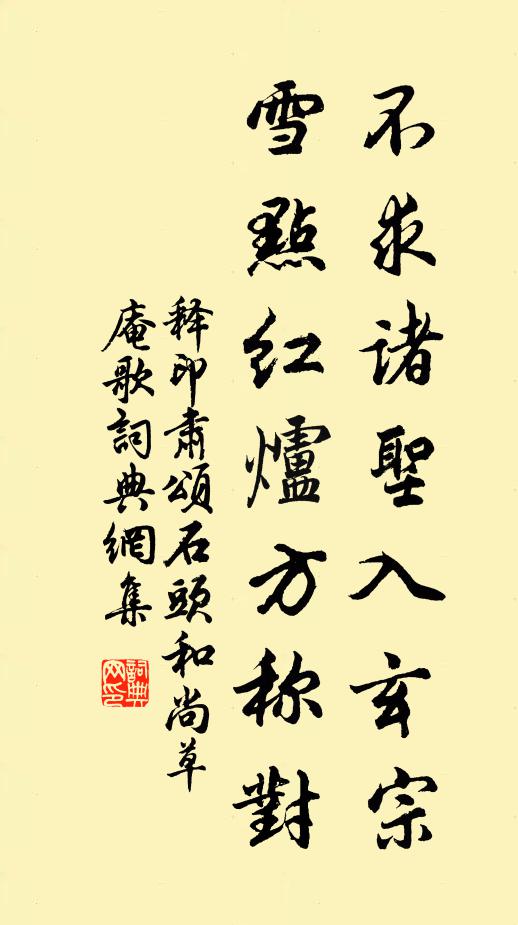 不求诸聖入玄宗
雪點红爐方称對
释印肃頌石頭和尚草
庵歌詞典網集
詞典網印